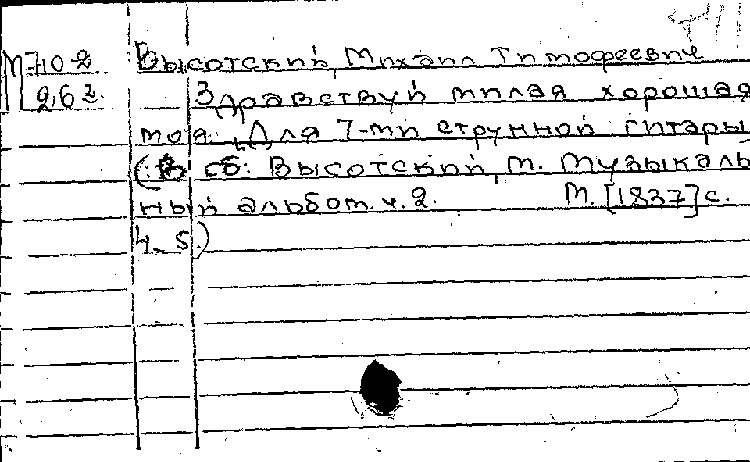 М 710-2 Высотский, Михаил Тимофеевич
2,62. Здравствуй милая хорошая
моя. Для 7-ми струнной гитары
(В сб: Высотский, М. Музыкаль
ный альбом. ч. 2. М. [1837] с.
4-5.)